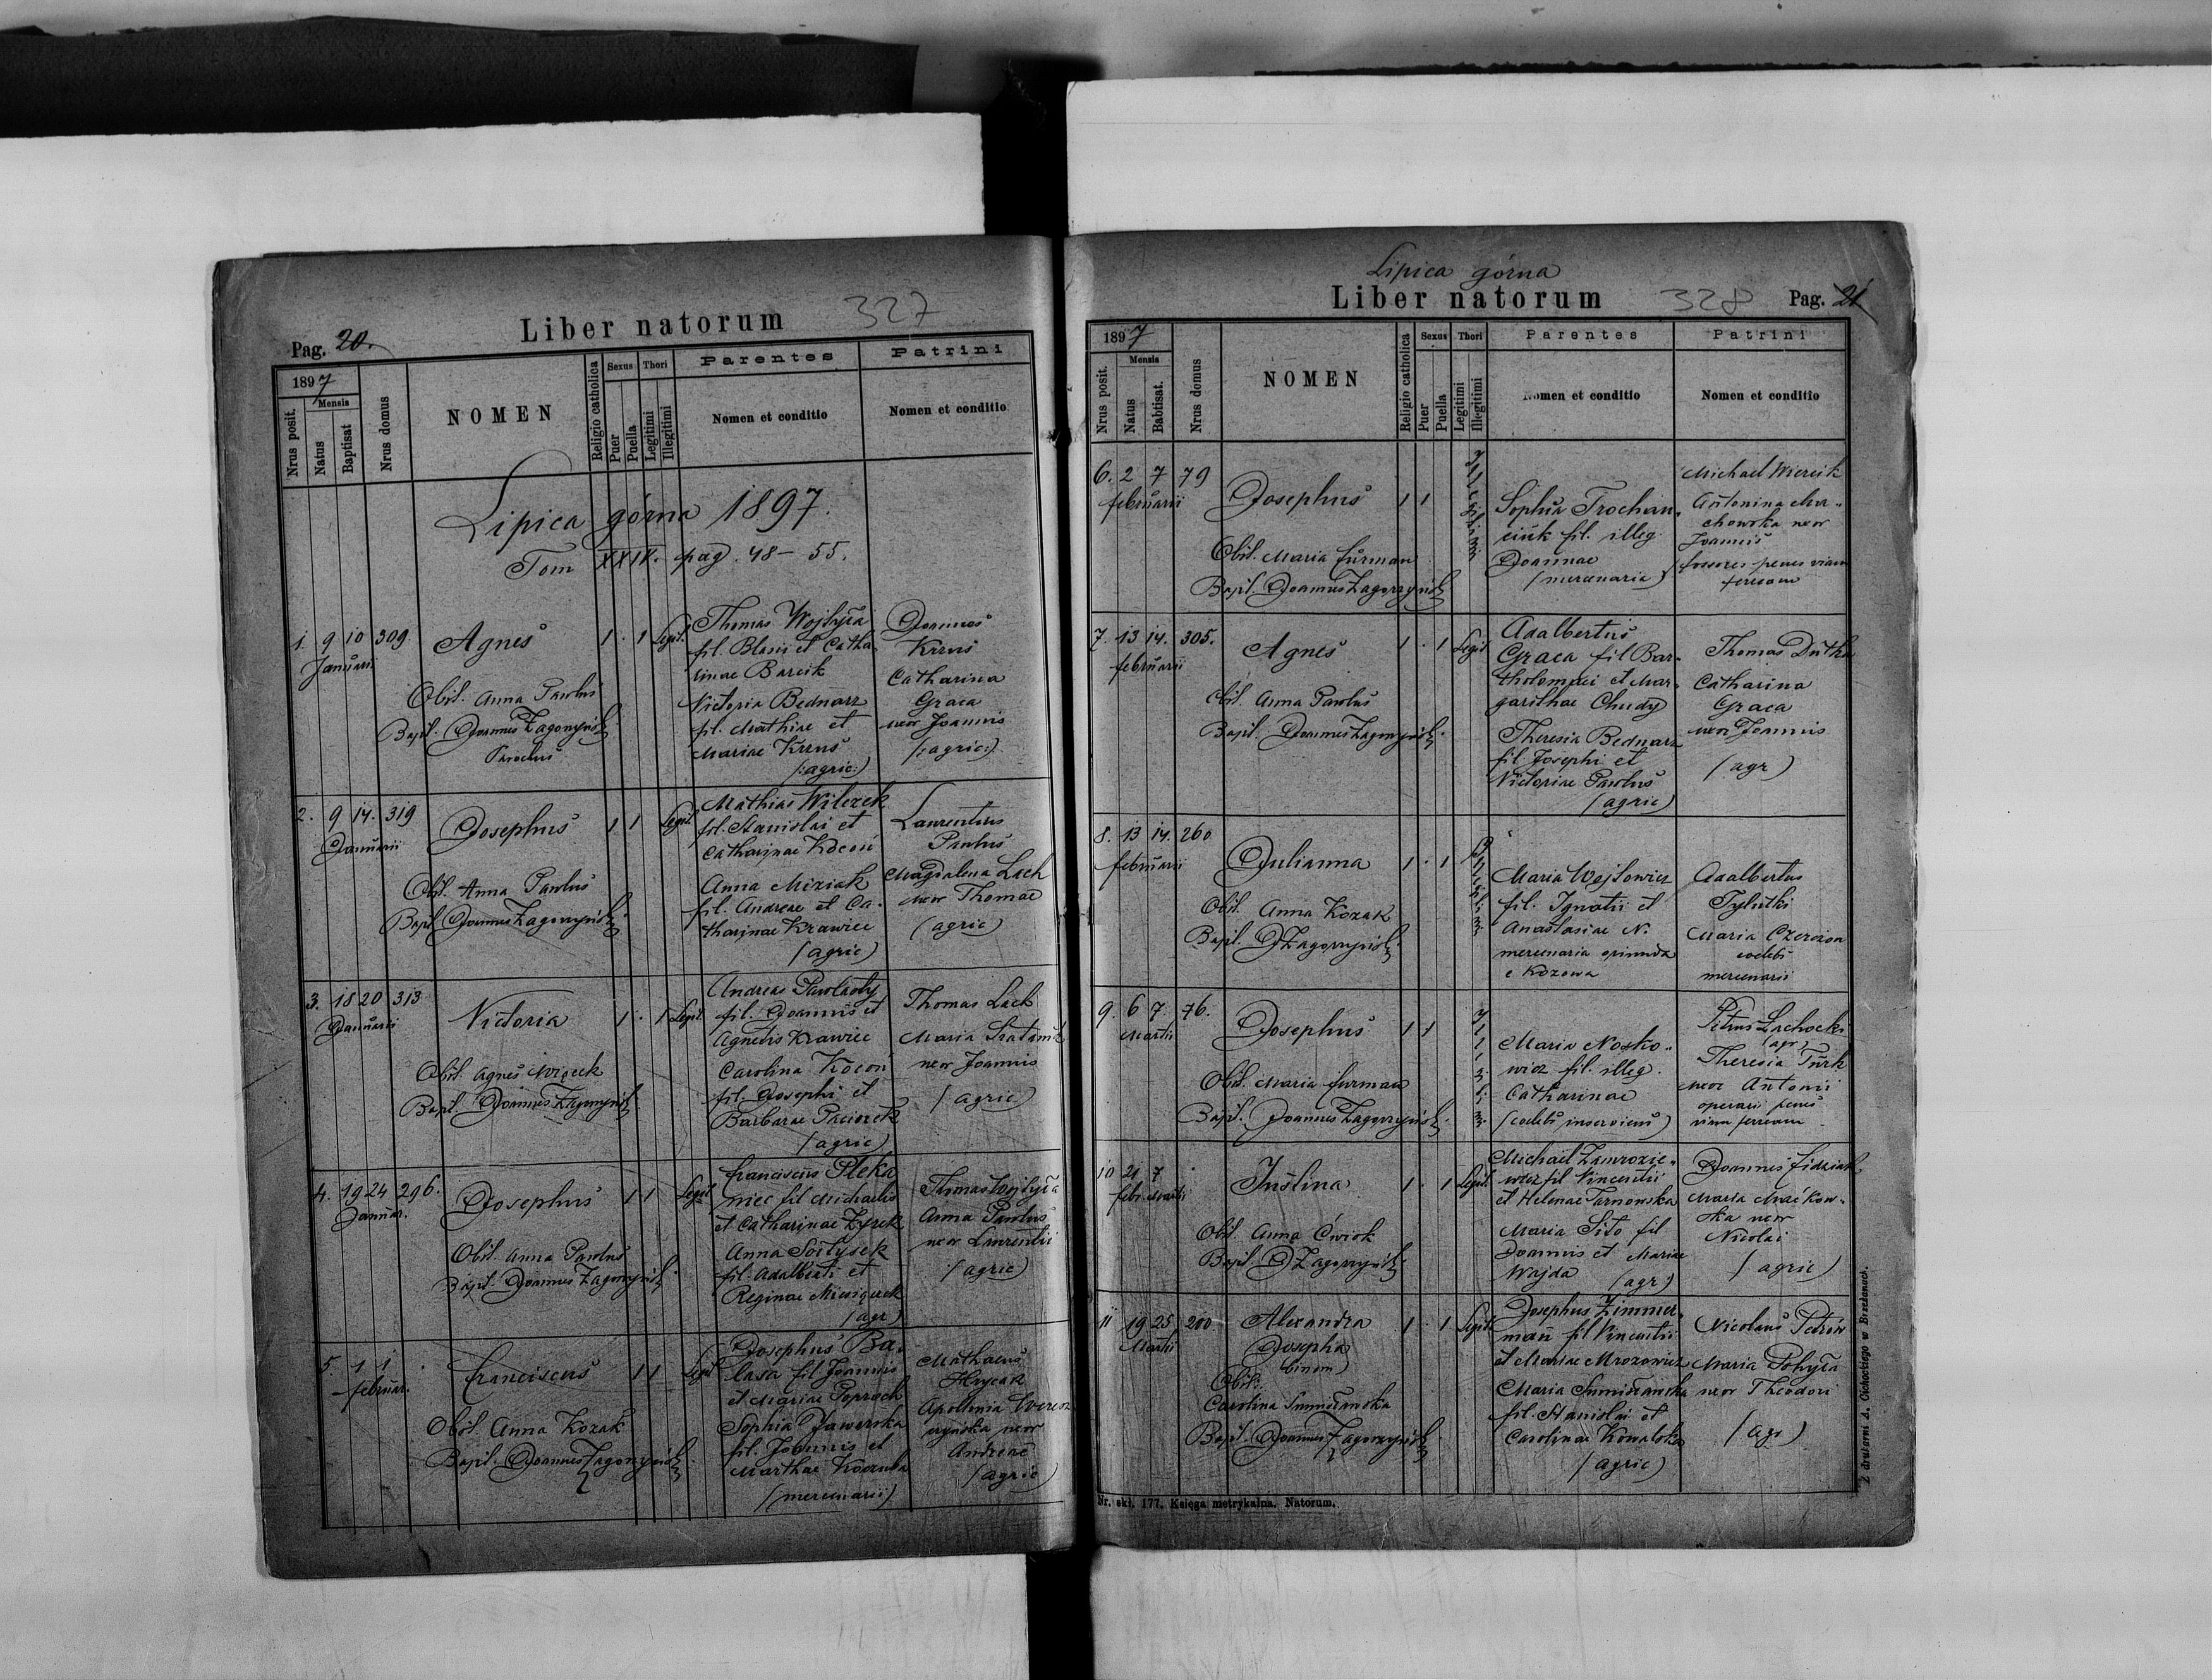 Liber natorum 327
Pag. 20.
1897
Nrus posit.
Mensis
Natus
Baptisat
Nrus domus
NOMEN
Religio catholica
Sexus
Puer
Puella
Thori
Legitimi
Illegitimi
Parentes
Nomen et conditio
Patrini
Nomen et conditio
Lipica górna 1897.
Tom XXIV. pag. 48-55.
1. 9 10 309
Januarii
Agnes
1 . 1 Legit.
Obst. Anna Pawlus
Bapt. Joannes Zagorzyński
Parochus
Thomas Wojtyła
fil. Blasii et Catha
rinae Barcik
Victoria Bednarz
fil. Mathiae et
Mariae Krzus
(:agric:)
Joannes
Krzus
Catharina
Graca
uxor Joannis
(:agric:)
2. 9 14. 319
Januarii
Josephus
1 1 Legit
Obst. Anna Pawlus
Bapt. Joannes Zagorzyński
Mathias Wilczek
fil. Stanislai et
Catharinae Kocoń
Anna Miziak
fil. Andreae et Ca-
tharinae Krawiec
(agric)
Laurentius
Pawlus
Magdalena Lach
uxor Thomae
(agric)
3. 18 20 313
Januarii
Victoria
1 . 1 Legit
Obst. Agnes
Bapt. Joannes Zagorzyński
Andreas
fil. Joannis et
Agnetis Krawiec
Carolina Kocoń
fil. Josephi et
Barbarae Paciorek
(agric)
Thomas Lach
Maria
uxor Joannis
(agric)
4. 19 24 296.
Januar.
Josephus
1 1 Legit
Obst. Anna Pawlus
Bapt. Joannes Zagorzyński
Franciscus Pleka
niec fil Michaelis
et Catharinae Zyrek
Anna Sołtysek
fil. Adalberti et
Reginae
(agr)
Thomas Wojtyła
Anna Pawlus
uxor Laurentii
(agric)
5. 1 1 .
februar.
Franciscus
1 1 Legit
Obst. Anna Kozak
Bapt. Joannes Zagorzyński
Josephus Ba-
lasa fil Joannis
et Mariae Poprach
Sophia Jaworska
fil. Joannis et
Marthae
(mercenarii)
Mathaeus
Hrycak
Apollonia
uxor
Andreae
(agric)
Lipica górna
Liber natorum 328 Pag. 21
1897
Nrus posit.
Mensis
Natus
Babtisat.
Nrus domus
NOMEN
Religio catholica
Sexus
Puer
Puella
Thori
Legitimi
Illegitimi
Parentes
Nomen et conditio
Patrini
Nomen et conditio
6. 2 7 79
februarii
Josephus
1 1
Illegitimi
Obst. Maria Furman
Bapt. Joannes Zagorzyński
Sophia Trochan-
ciuk fil. illeg
Joannae
(mercenaria)
Michael Wiercik
Antonina Ma-
chowska uxor
Joannis
fossores penes viam
ferream
7. 13 14. 305.
februarii
Agnes
1 . 1 Legit
Obst. Anna Pawlus
Bapt. Joannes Zagorzyński
Adalbertus
Graca fil Bar-
tholomaei et Mar-
garithae Chudy
Theresia Bednarz
fil Josephi et
Victoriae Pawlus
(agric)
Thomas Dutka
Catharina
Graca
uxor Joannis
(agr)
8. 13 14. 260
februarii
Julianna
1 . 1
Obst. Anna Kozak
Bapt. J Zagorzyński
Maria Wojtowicz
fil. Ignatii et
Anastasiae N.
mercenaria oriunda
e Kozowa
Adalbertus
Tylutki
Maria
coelebs
mercenarii
9. 6 7. 76.
Martii
Josephus
1 1
Illegitimi
Obst. Maria Furman
Bapt. Joannes Zagorzyński
Maria Nosko-
wicz fil. illeg.
Catharinae
(coelebs inserviens)
Petrus Lachocki
(agr)
Theresia Turk
uxor Antonii
operarii penes
viam ferream
10 21 7 .
febr. Martii
Justina
1 . 1 Legit.
Obst. Anna Ćwiok
Bapt J Zagorzyński
Michael Zamrozie-
wicz fil Vincentii
et Helenae Tarnowska
Maria Sito fil
Joannis et Mariae
Wajda (agr)
Joannes Fidziak
Maria Maćkow-
ska uxor
Nicolai
(agric)
11 19 25 200
Martii
Alexandra
Josepha
(binom)
1 . 1 Legit
Obst.
Carolina
Bapt. Joannes Zagorzyński
Josephus Zimmer-
man fil Vincentii
et Mariae Mrozowicz
Maria
fil. Stanislai et
Carolinae Kowalska
(agric)
Nicolaus Petrów
Maria Pohyła
uxor Theodori
(agr)
Nr. skł. 177. Księga metrykalna. Natorum.
Z drukarni A. Cichockiego w Brzeżanach.